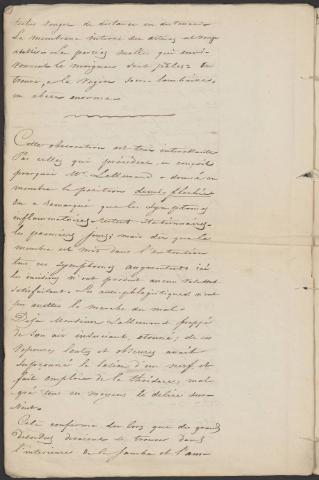 rouges de distance en distance
La membrane interne des artères est rouge
Les parties molles qui envi-
ronnent le moignon sont pâles. On
trouve, à la région sacro lombaire,
un abcès énorme.
Cette observation est très intéressante
Par celles qui précèdent, on conçoit
pourquoi Mr. Lallemand a donné au
membre la position demi-fléchie
On a remarqué que les symptômes
inflammatoires étaient stationnaires
les premiers jours, mais dès que le
membre est mis dans l'extention
tous ces symptômes augmentent ici
les incisions n'ont produit aucun résultat
satisfaisant. Les antiphlogistiques n'ont
pu arrêter la marche du mal.
Déjà Monsieur Lallemand frappé
de son air insouciant, étonné; de ses
réponses lentes et obscures avait
soupçonné la lésion d'un nerf et
fait emploi de la thridace; mal-
gré tous ces moyens le délire sur-
vint.
Cela confirme dès lors que de grands
désordres devaient se trouver dans
l'intérieur de la jambe et l'am-